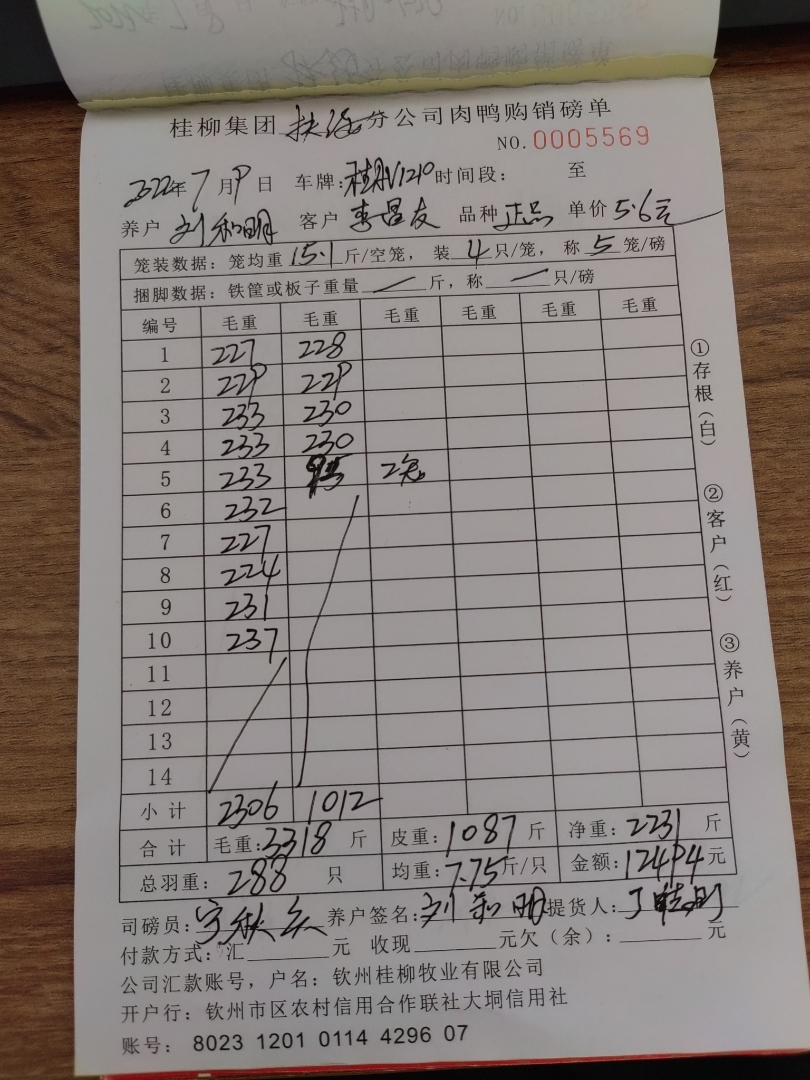 桂柳集团 分公司肉鸭购销磅单
NO.0005569
2022年7月9日 车牌:桂 1210 时间段: 至
养户 刘和明 客户 李昌友 品种 正品 单价 5.6元
笼装数据: 笼均重 15.1 斤/空笼, 装 4 只/笼, 称 5 笼/磅
捆脚数据: 铁筐或板子重量 一 斤, 称 一 只/磅
编号 毛重 毛重 毛重 毛重 毛重 毛重
1 227 228
2 229 229
3 233 230
4 233 230
5 233 95 2笼
6 232
7 227
8 224
9 231
10 237
11
12
13
14
小计 2306 1012
合计 毛重:3318 斤 皮重:1087 斤 净重:2231 斤
总羽重: 288 只 均重:7.75斤/只 金额:12494元
司磅员: 养户签名:刘和明 提货人:
付款方式: 汇______元 收现______元欠(余):______元
公司汇款账号, 户名: 钦州桂柳牧业有限公司
开户行: 钦州市区农村信用合作联社大垌信用社
账号: 8023 1201 0114 4296 07
①存根(白)
②客户(红)
③养户(黄)